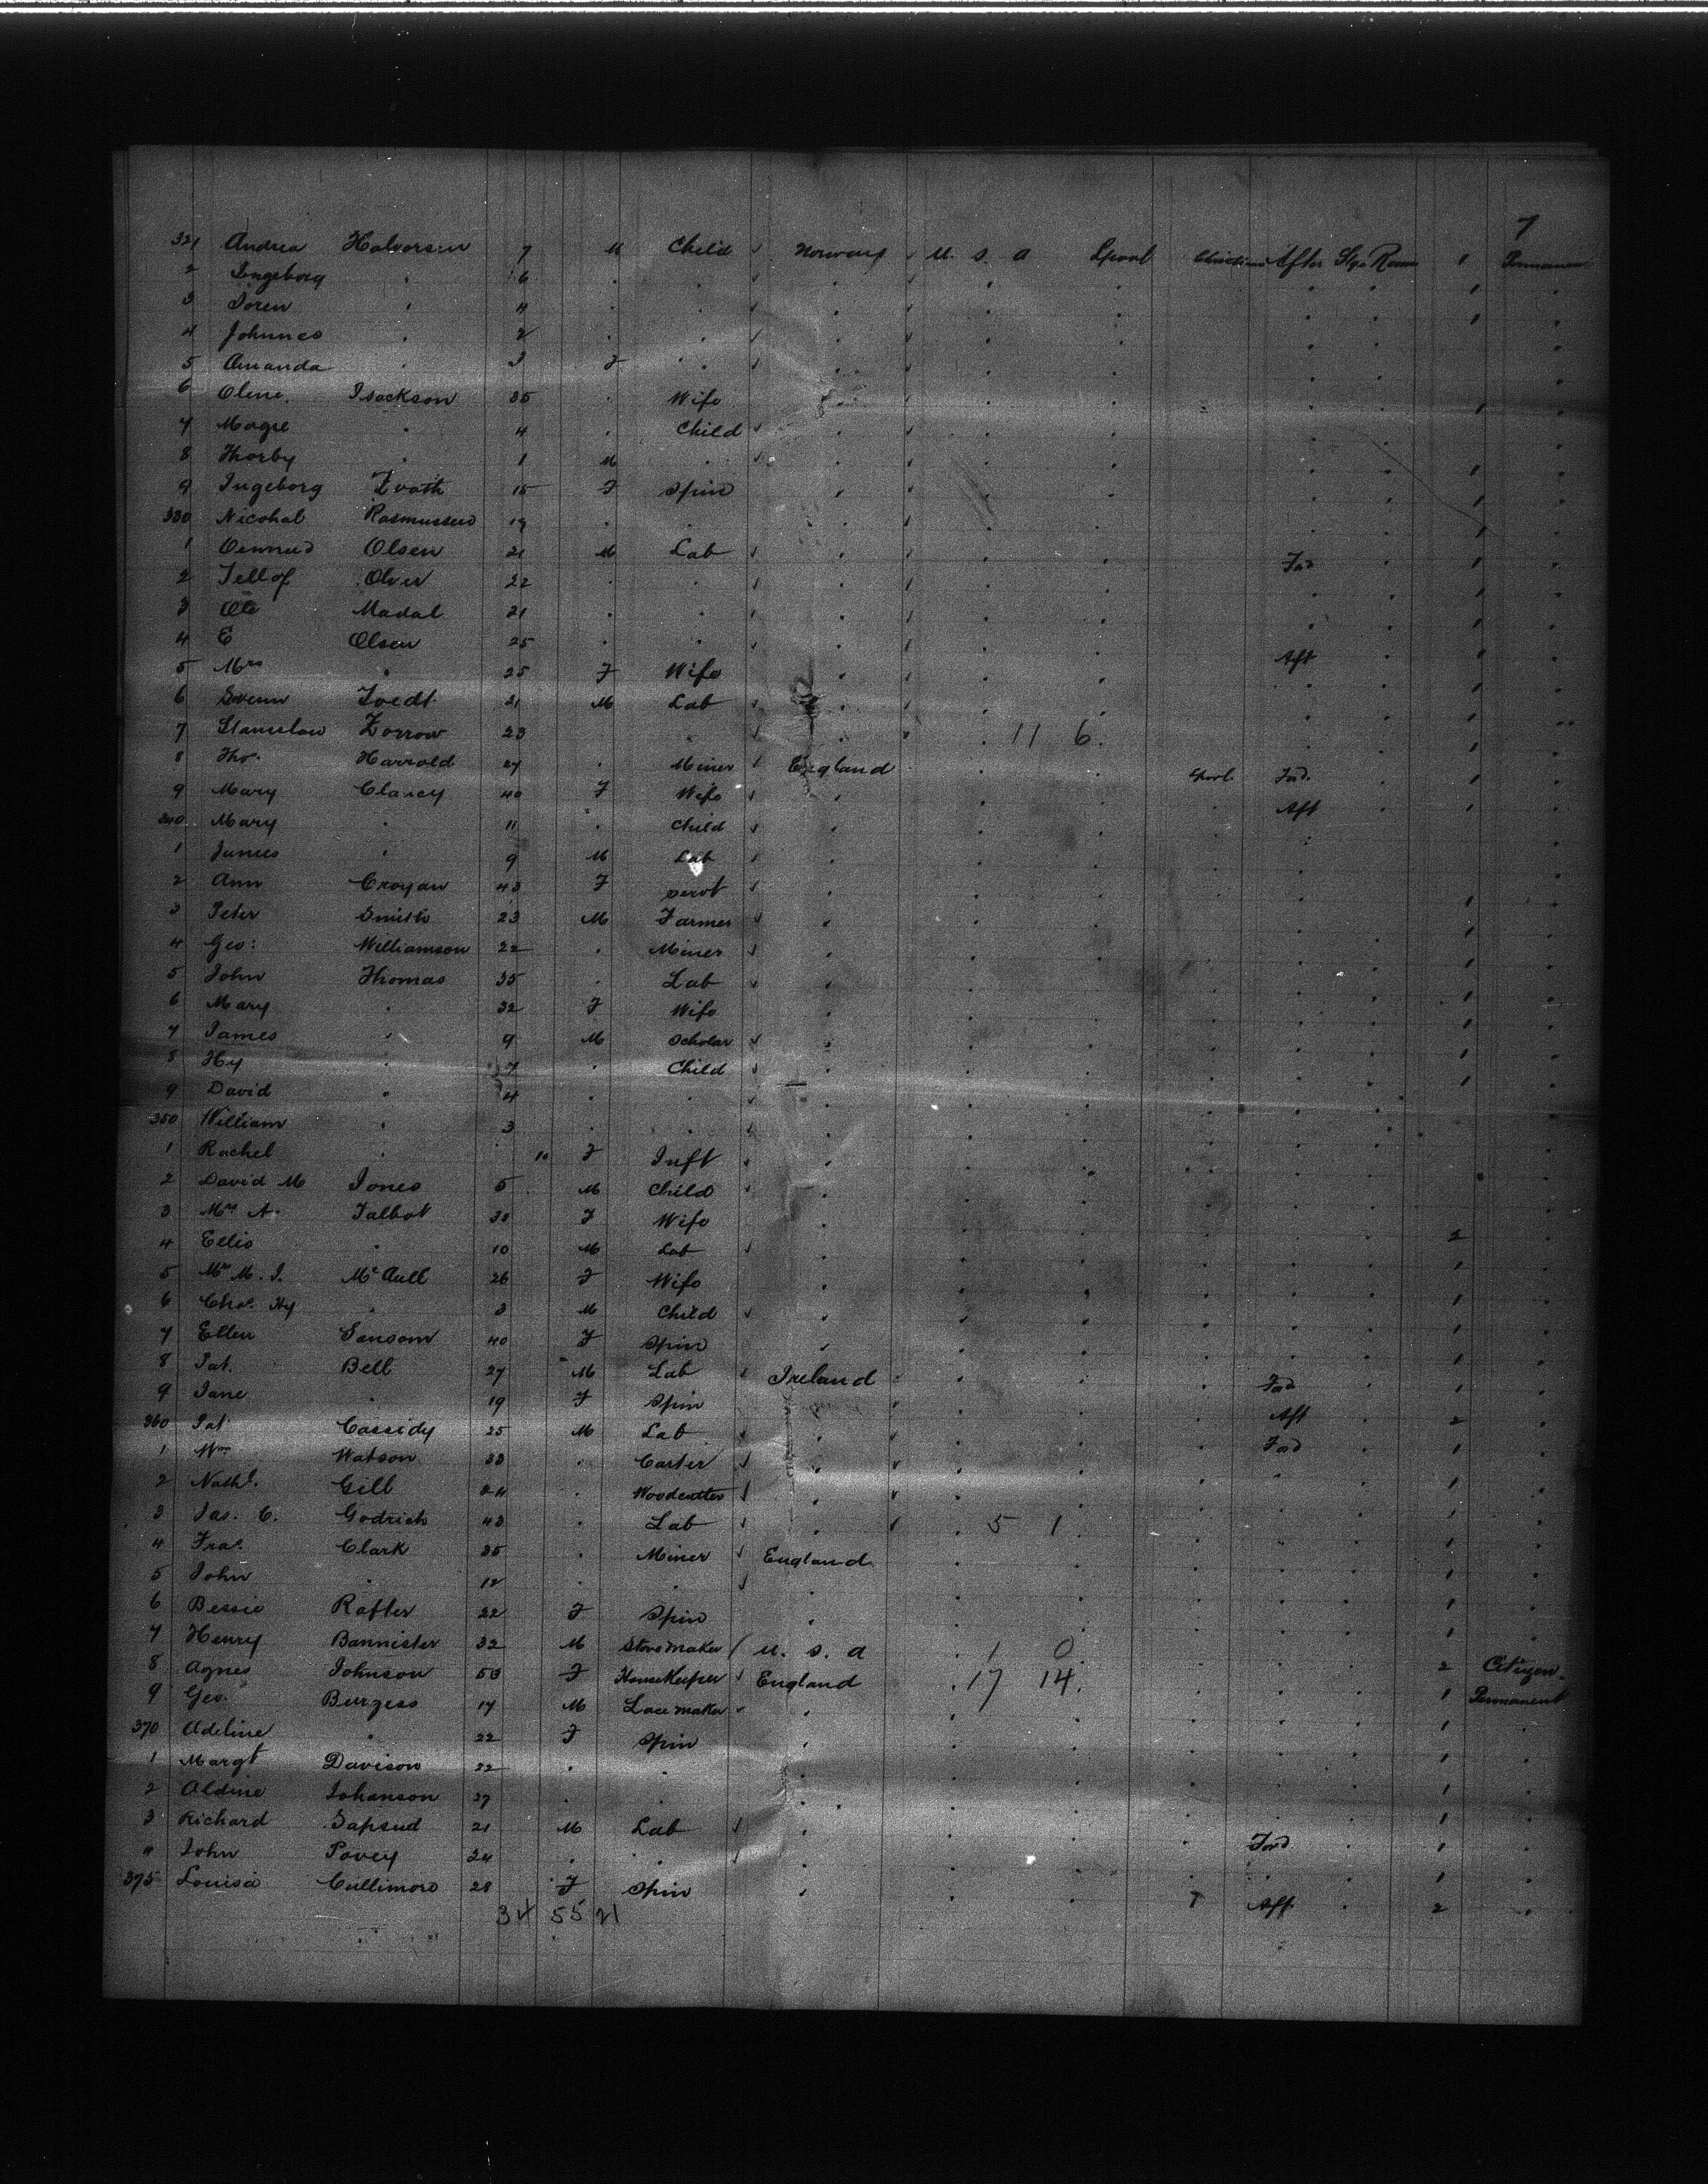 7
321 Andrea Halvorsen 7 M Child Norway U. S. A Lpool Christiania After Stge Room 1 Permanen
2 Ingeborg " 6 1
3 Soren " 4 1
4 Johannes " 2
5 Amanda " 3 F
6 Olene Isackson 35 Wife 1
7 Magre " 4 Child
8 Thorby " 1 M 1
9 Ingeborg 15 F Spin 1
330 Nicohal Rasmussen 19 1
1 Olsen 21 M Lab Ford 1
2 Tellof Olver 22 1
3 Ole Madal 21 1
4 E Olsen 25 Aft 1
5 Mrs " 25 F Wife 1
6 Svenn 21 M Lab 1
7 Stanislaw Zorrow 23 11 6 1
8 Tho. Harrold 27 Miner England Lpool Ford 1
9 Mary Clancy 40 F Wife Aft 1
340 Mary " 11 Child
1 James " 9 M Lab
2 Ann Crogan 43 F Servt 1
3 Peter Smith 23 M Farmer 1
4 Geo: Williamson 22 Miner 1
5 John Thomas 35 Lab 1
6 Mary " 32 F Wife 1
7 James " 9 M Scholar 1
8 Hy " 7 Child 1
9 David " 4
350 William " 3
1 Rachel " 10 F Inft
2 David M Jones 5 M Child
3 Mrs A. Talbot 38 F Wife 2
4 Ellis " 10 M Lab 1
5 Mrs M. J. McAull 26 F Wife 1
6 Chas. Hy " 3 M Child 1
7 Ellen Sansom 40 F Spin 1
8 Pat. Bell 27 M Lab Ireland Fod 1
9 Jane " 19 F Spin Aft 2
360 Pat Cassidy 25 M Lab Ford 1
1 Wm Watson 33 Carter 1
2 Nathl. Gill 24 Woodcutter 1
3 Jas. C. Godrich 43 Lab 5 1 1
4 Fras. Clark 35 Miner England 1
5 John " 12 1
6 Bessie Rafter 22 F Spin 1
7 Henry Bannister 32 M Stove Maker U. S. A 1 0 2 Citizen
8 Agnes Johnson 50 F HouseKeeper England 17 14 1 Permanent
9 Geo. Burgess 17 M Lace Maker 1
370 Adeline " 22 F Spin 1
1 Margt Davison 22 1
2 Aldine Johanson 27 1
3 Richard Sapsud 21 M Lab Ford 1
4 John Povey 24 1
375 Louisa Cullimore 28 F Spin Aft 2
34 55 21